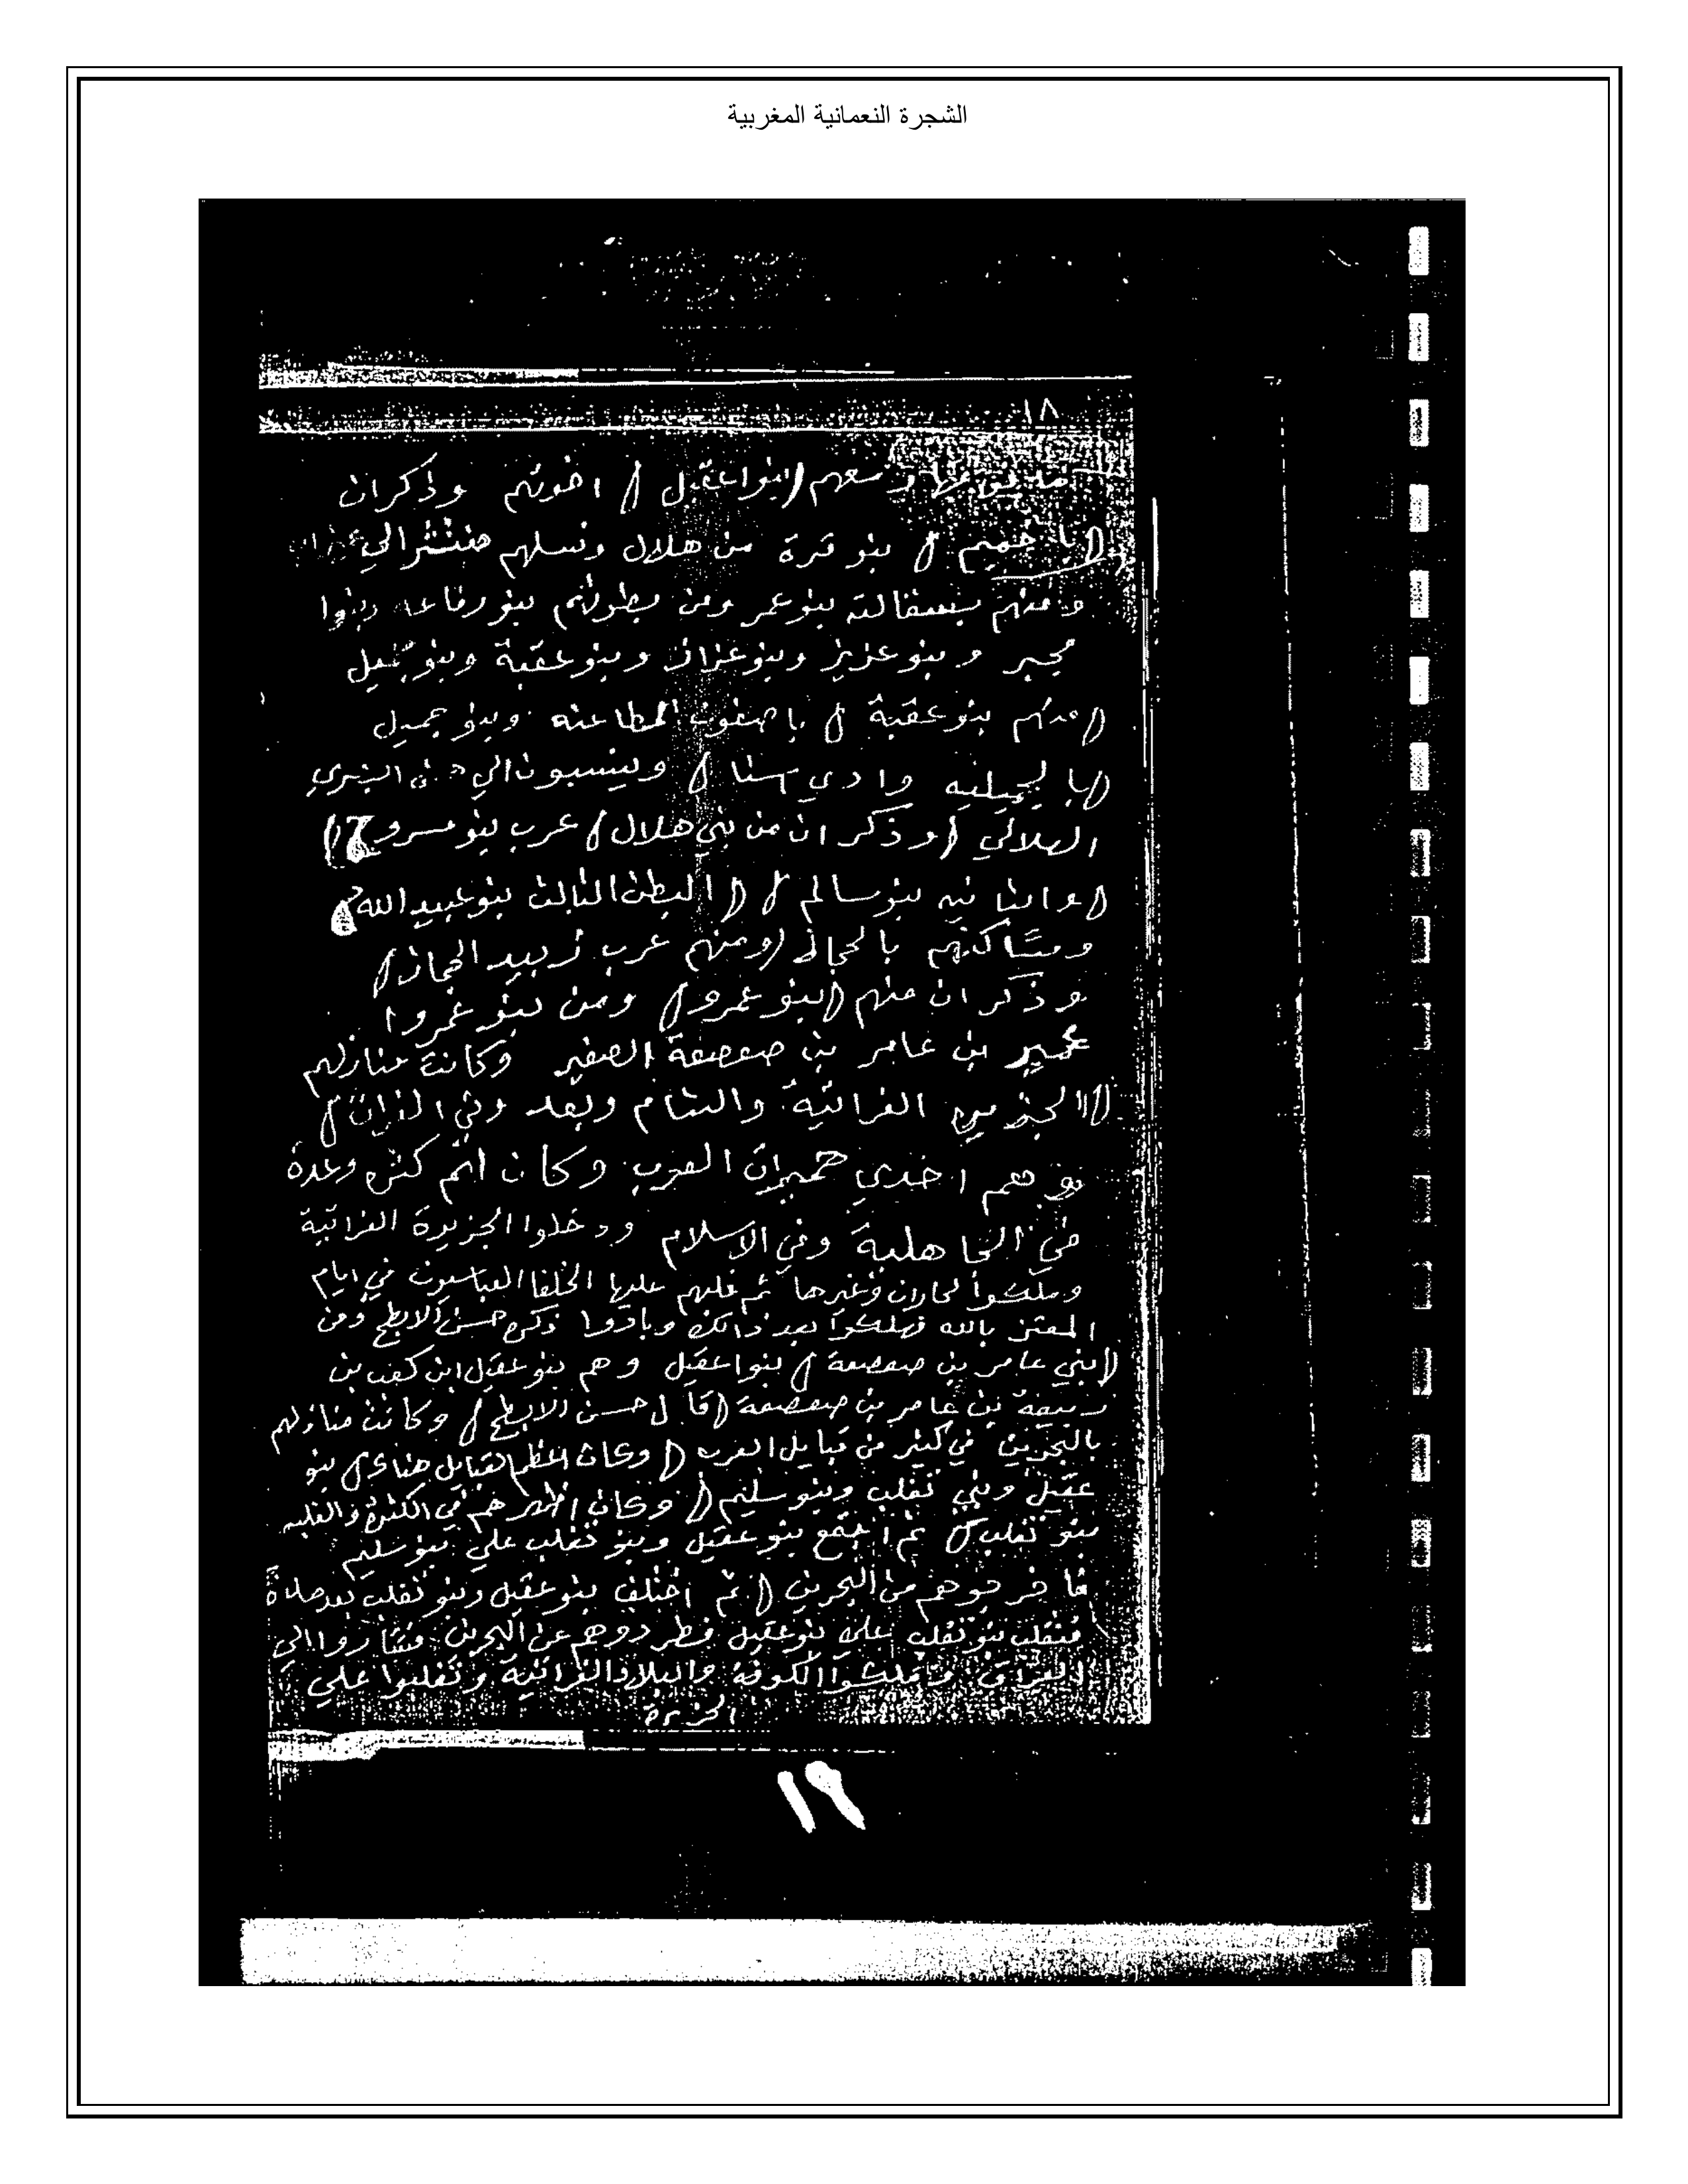 الشجرة النعمانية المغربية
١٨
ومعهم (بنوا عقيل) اخوتهم وذكران
باخميم) بنو قرة من هلال ونسلهم منتشر الي
ومنهم بسفالته بنو عمر ومن بطونهم بنو رفاعه وبنوا
مجير وبنو عزيز وبنو عزان وبنو عقبة وبنو
(منهم بنو عقبة) باصفون المطاعنه وبنو جميل
وينسبون الي
الهلالي (وذكر ان من بني هلال) عرب بنو مسروح)
بنو سالم) (البطن الثالث بنو عبيد الله
ومساكنهم بالحجاز (ومنهم عرب زبيد الحجاز)
وذكر ان منهم (بنو عمرو) ومن بنو عمروا
عمير بن عامر بن صعصعة الصغير وكانت منازلهم
الفراتية والشام وبعد وفي
احدي العرب وكان لهم كثره وعدة
في الجاهلية وفي الاسلام ودخلوا الجزيرة الفراتية
وملكوا لحاران وغيرها ثم غلبهم عليها الخلفا العباسيون في ايام
المعتز بالله فهلكوا بعد ذالك وبادوا ذكره حسن الابطح ومن
(بني عامر بن صعصعة) بنوا عقيل وهم بنو عقيل ابن كعب بن
ربيعة بن عامر بن صعصعة (قال حسن الابطح) وكانت منازلهم
بالبحرين في كثير من قبايل العرب (وكان اعظم القبايل هناك) بنو
عقيل وبني تغلب وبنو سليم (وكان اظهرهم في الكثرة والغلبه
بنو تغلب) ثم اجتمع بنو عقيل وبنو تغلب علي بنو سليم
فاخرجوهم من البحرين (ثم اختلف بنو عقيل وبنو تغلب بعد مدة
فتغلب بنو تغلب علي بنو عقيل فطردوهم عن البحرين فساروا الي
العراق وملكوا الكوفة والبلاد الفراتية وتغلبوا علي
الجزيرة